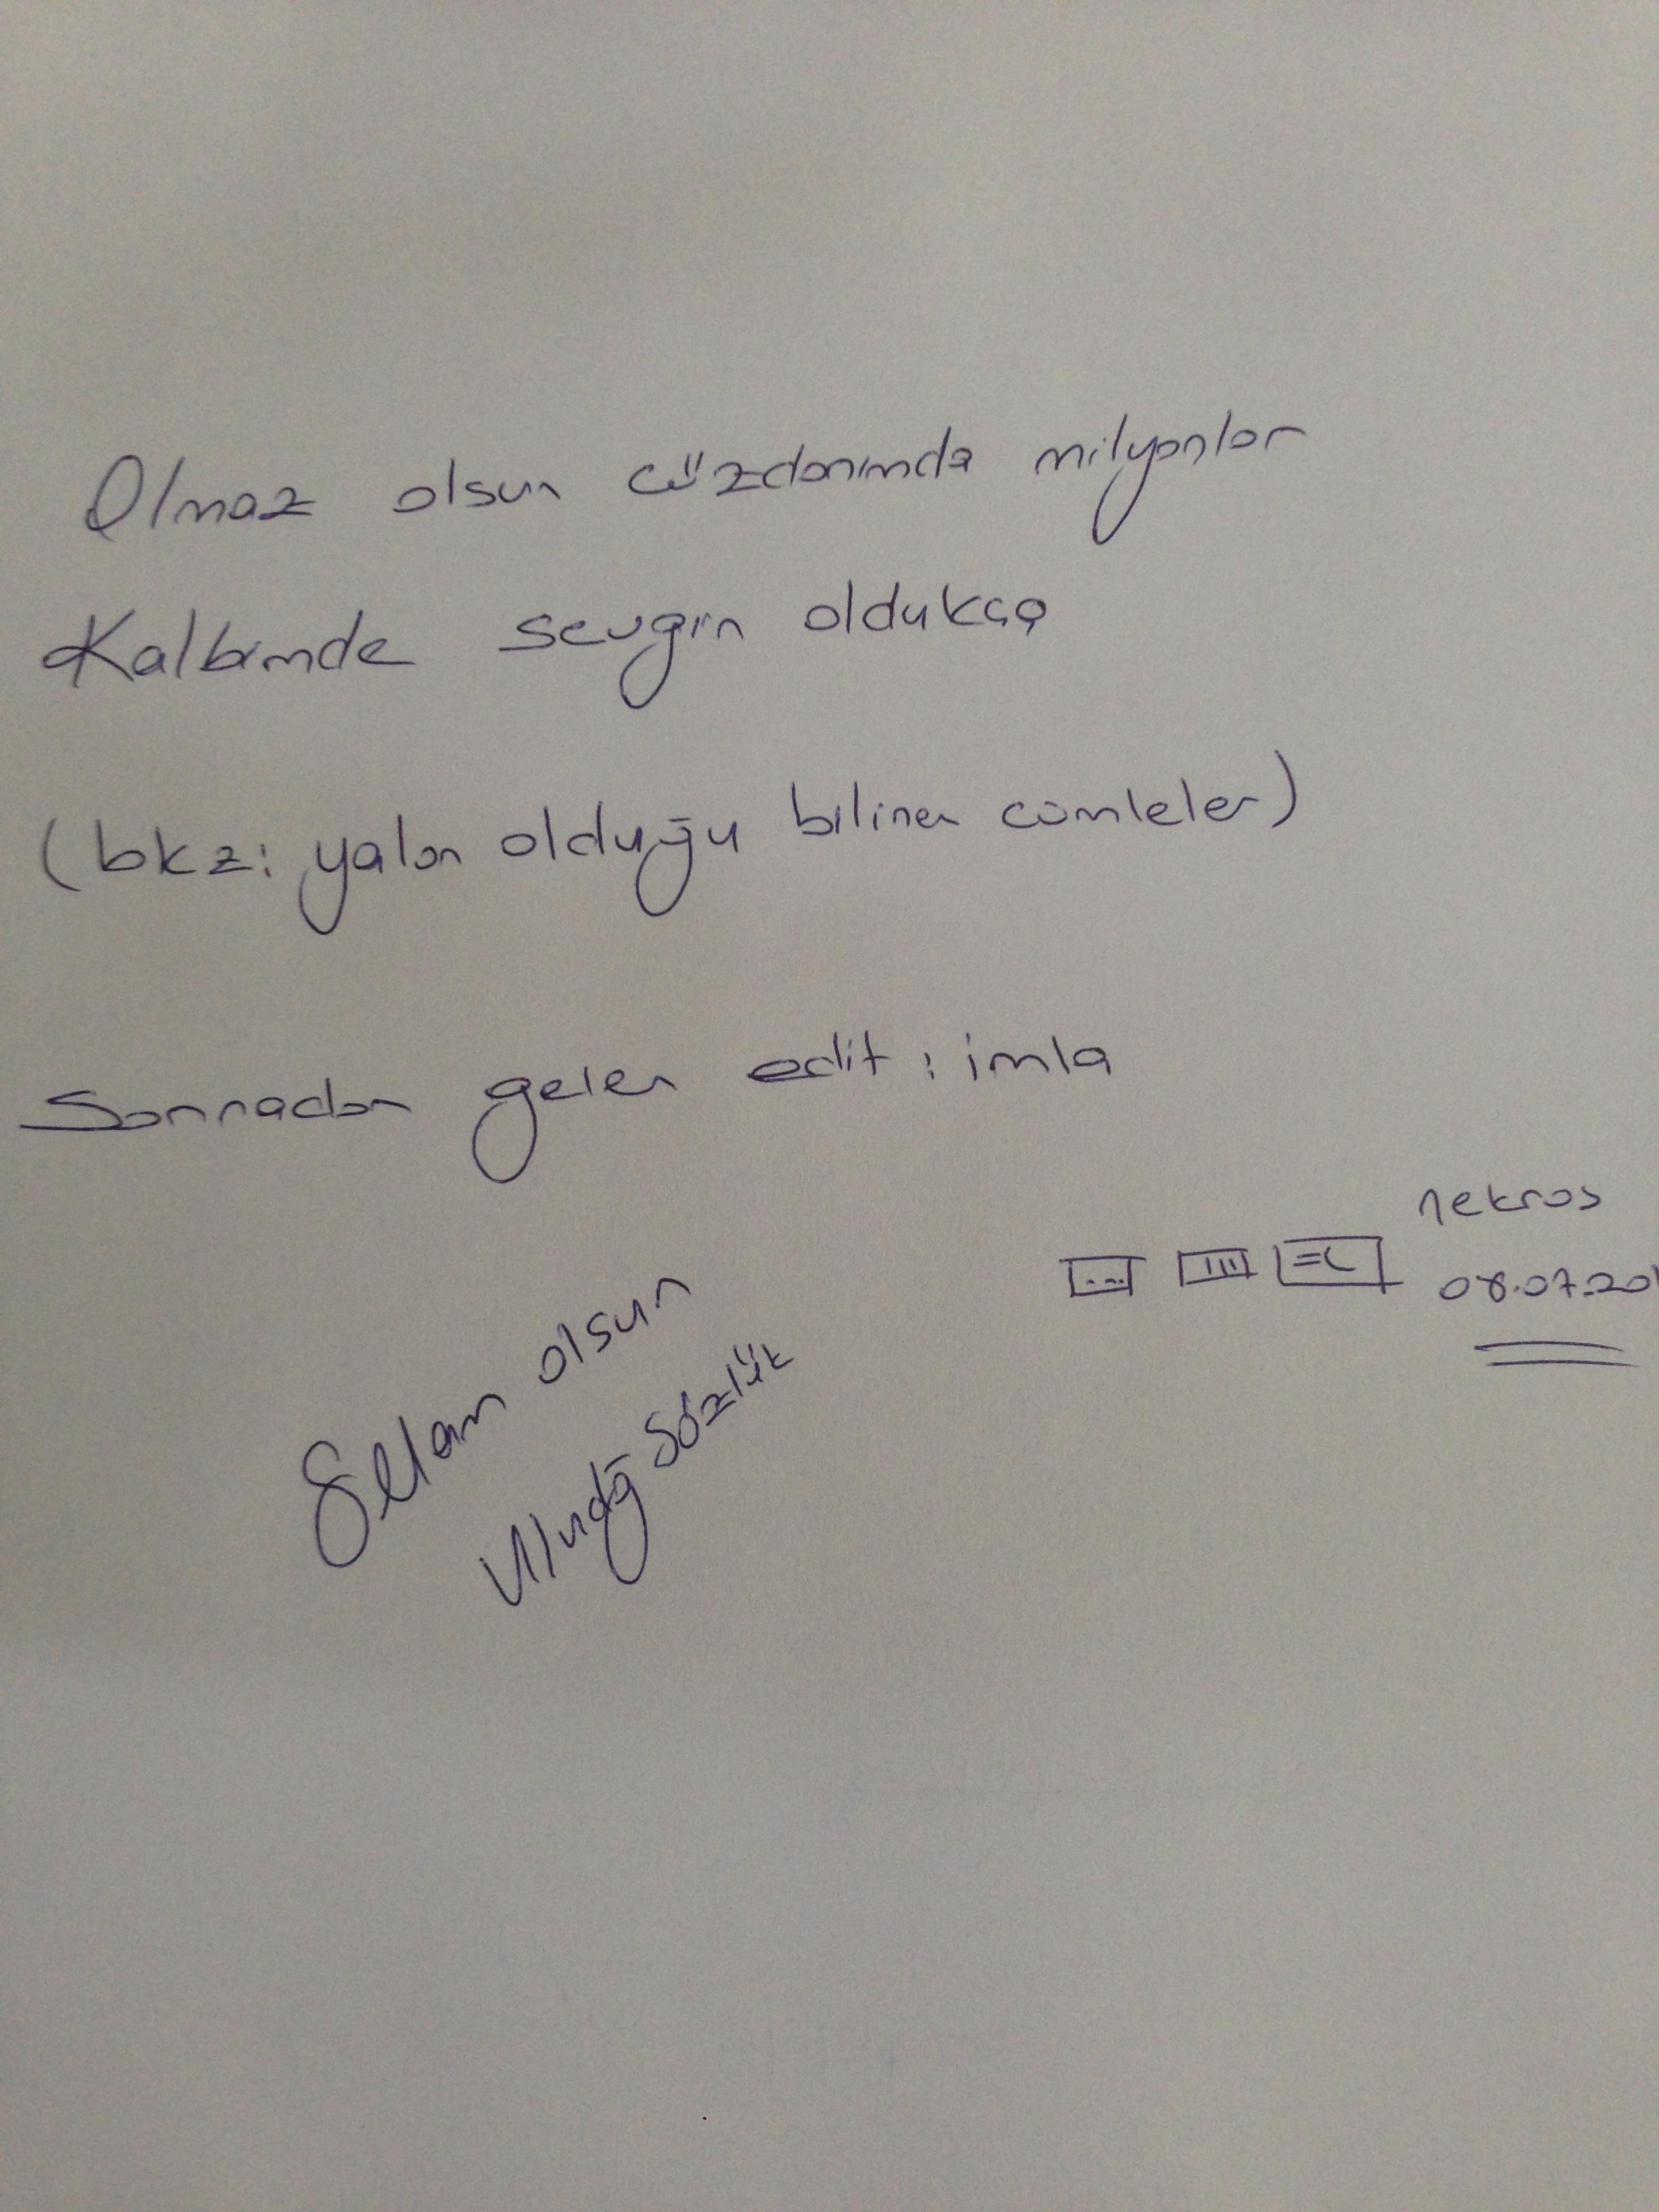 Olmaz olsun cüzdanımda milyonlar
Kalbimde sevgin oldukça
(bkz: yalan olduğu bilinen cümleler)
Sonradan gelen edit : imla
nekros
08.07.201
Selam olsun
Uludağ Sözlük